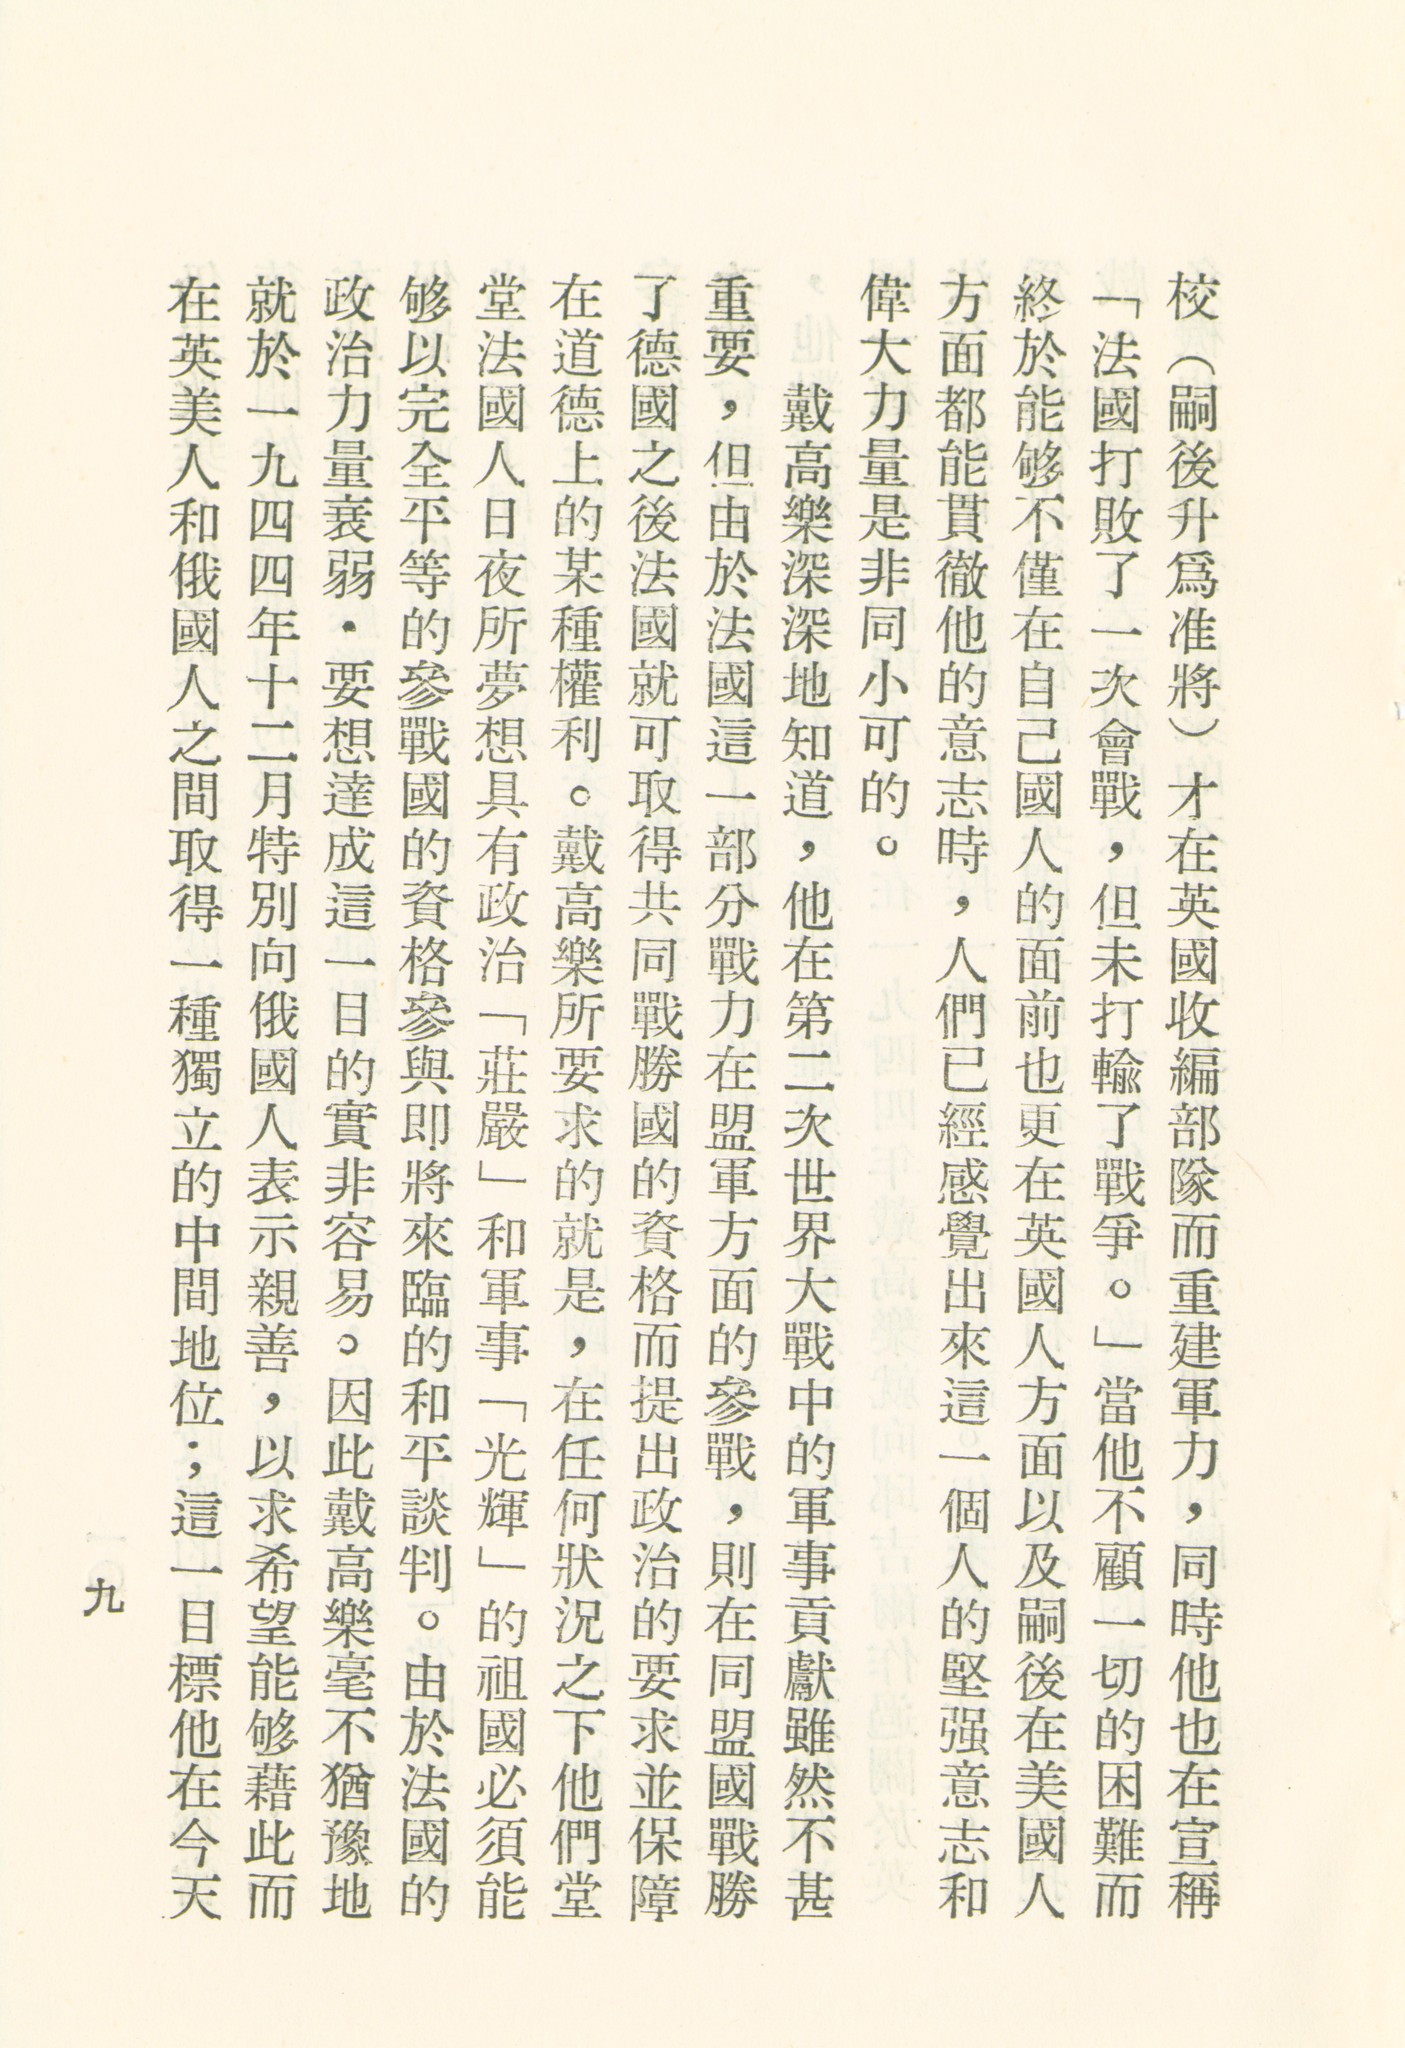 校（嗣後升爲准將）才在英國收編部隊而重建軍力，同時他也在宣稱
「法國打敗了一次會戰，但未打輸了戰爭。」當他不顧一切的困難而
終於能够不僅在自己國人的面前也更在英國人方面以及嗣後在美國人
方面都能貫徹他的意志時，人們已經感覺出來這一個人的堅强意志和
偉大力量是非同小可的。
戴高樂深深地知道，他在第二次世界大戰中的軍事貢獻雖然不甚
重要，但由於法國這一部分戰力在盟軍方面的參戰，則在同盟國戰勝
了德國之後法國就可取得共同戰勝國的資格而提出政治的要求並保障
在道德上的某種權利。戴高樂所要求的就是，在任何狀況之下他們堂
堂法國人日夜所夢想具有政治「莊嚴」和軍事「光輝」的祖國必須能
够以完全平等的參戰國的資格參與即將來臨的和平談判。由於法國的
政治力量衰弱．要想達成這一目的實非容易。因此戴高樂毫不猶豫地
就於一九四四年十二月特別向俄國人表示親善，以求希望能够藉此而
在英美人和俄國人之間取得一種獨立的中間地位；這一目標他在今天
九